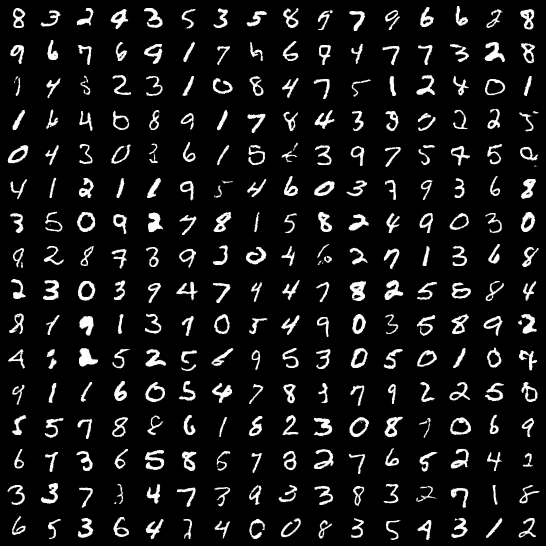 8 3 2 4 3 5 3 5 8 9 7 9 6 6 2 8
9 6 7 6 9 1 7 h 6 9 4 7 7 3 2 8
1 4 8 2 3 1 0 8 4 7 5 1 2 8 0 1
1 6 4 0 8 9 1 7 8 4 3 3 0 2 2 5
0 4 3 0 3 6 1 5 6 3 9 7 5 7 5 2
4 1 2 1 1 9 5 4 6 0 3 7 9 3 6 8
3 5 0 9 2 7 8 1 5 8 2 4 9 0 3 0
8 2 8 7 3 9 3 0 4 6 2 7 1 3 6 8
2 3 0 3 9 4 7 9 4 7 8 2 5 5 8 4
8 1 9 1 3 9 0 5 4 9 0 3 5 8 9 2
4 2 5 2 5 6 9 5 3 0 5 0 1 0 7
9 1 1 6 0 5 4 7 8 3 7 9 2 2 5 0
5 5 7 8 8 6 1 8 2 3 0 8 7 0 6 9
6 7 3 6 5 8 6 7 3 2 7 6 5 2 4 2
3 3 7 3 4 7 3 9 3 3 8 3 2 7 1 8
6 5 3 6 4 2 4 0 0 8 3 5 4 3 1 2